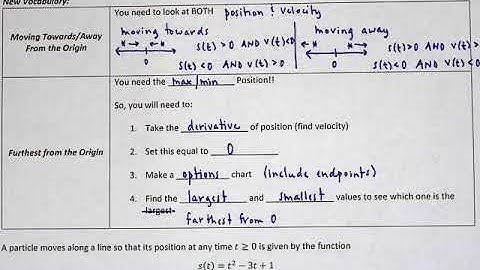 New Vocabulary:
You need to look at BOTH position & velocity
Moving Towards/Away
From the Origin
moving towards
0
s(t) > 0 AND v(t) < 0
s(t) < 0 AND v(t) > 0
moving away
0
s(t) > 0 AND v(t) >
s(t) < 0 AND v(t) < 0
You need the max/min Position!!
So, you will need to:
Furthest from the Origin
1. Take the derivative of position (find velocity)
2. Set this equal to 0
3. Make a options chart (include endpoints)
4. Find the largest and smallest values to see which one is the
largest
farthest from 0
A particle moves along a line so that its position at any time t ≥ 0 is given by the function
s(t) = t² − 3t + 1